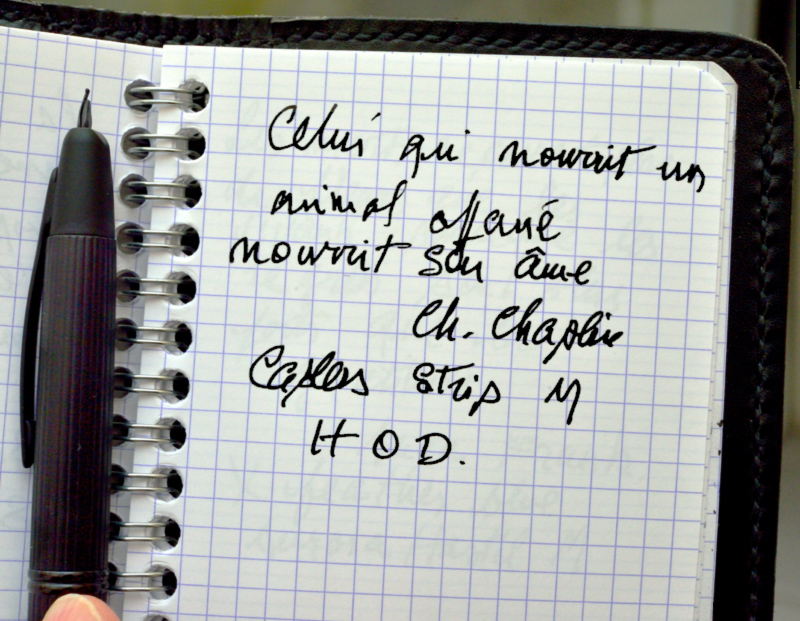 Celui qui nourrit un
animal affamé
nourrit son âme
Ch. Chaplin
Capless strip M
HOD.